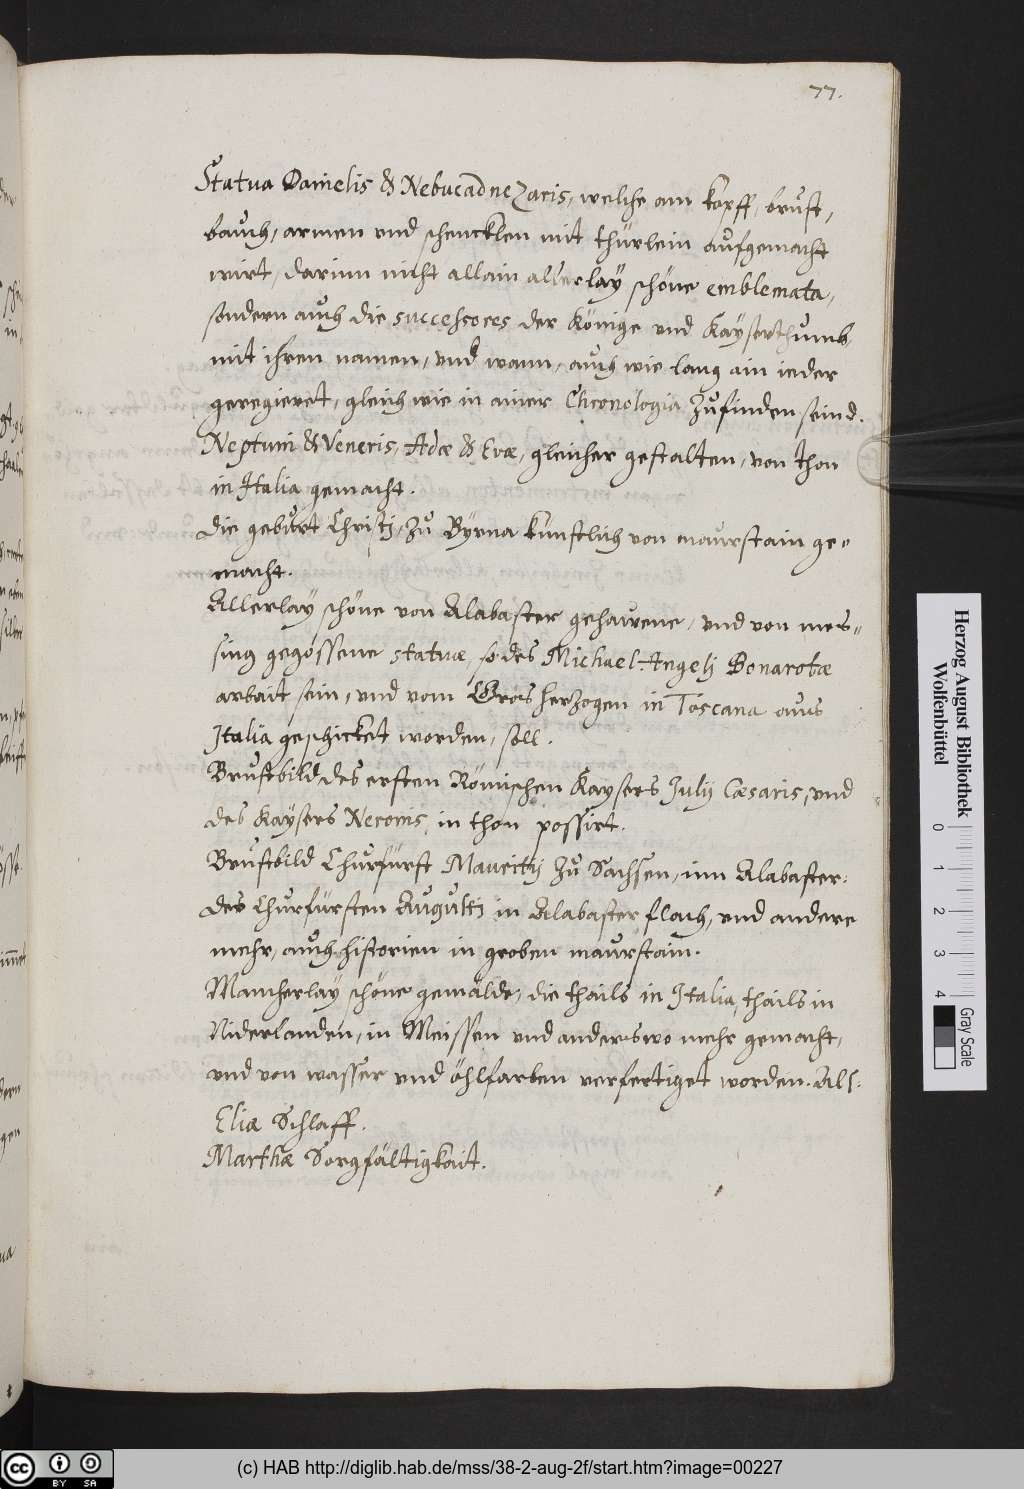 77.
Statua Danielis & Nebucadnezaris, welche am kopff, brust,
bauch, armen vnd schencklen mit thürlein aufgemacht
wirt, darinn nicht allain allerlay schöne emblemata,
sondern auch die successores der Könige vnd Kayserthumb,
mit ihren namen, vnd wann, auch wie lang ain ieder
geregieret, gleich wie in ainer Chronologia zufinden seind.
Neptuni & Veneris, Adæ & Evæ, gleicher gestalten, von thon
in Italia gemacht.
Die geburt Christj, zu Byrna kunstlich von maurstain ge„
macht.
Allerlay schöne von Alabaster gehawene, vnd von mes„
sing gegossene statuæ, so des Michael Angelj Bonarotæ
arbait sein, vnd vom Gros herzogen in Toscana aus
Italia geschicket worden, soll.
Brustbild des ersten Römischen Kaysers Julij Cæsaris, vnd
des Kaysers Neronis, in thon possirt.
Brustbild Churfürst Mauritij zu Sachsen, inn Alabaster.
des Churfürsten Augustj in Alabaster flach, vnd andere
mehr, auch historien in groben maurstain.
Mancherlay schöne gemälde, die thails in Italia, thails in
Niderlanden, in Meissen vnd anderswo mehr gemacht,
vnd von wasser vnd öhlfarben verfertiget worden. Als:
Eliæ Schlaff.
Marthæ Sorgfältigkait.
Herzog August Bibliothek
Wolfenbüttel
0 1 2 3 4
Gray Scale
cc BY SA
(c) HAB http://diglib.hab.de/mss/38-2-aug-2f/start.htm?image=00227